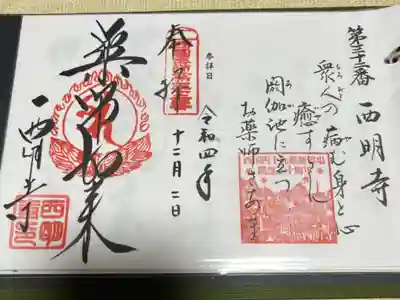 第三十二番 西明寺
衆人の病む身と心
癒すらん
閼伽池に立つ
お薬師さま
参拝日
令和四年
十二月二日
奉拝
薬師如来
西明寺